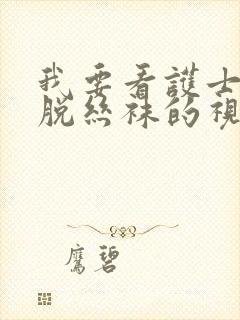 我要看護士
脫絲袜的視
鷹碧